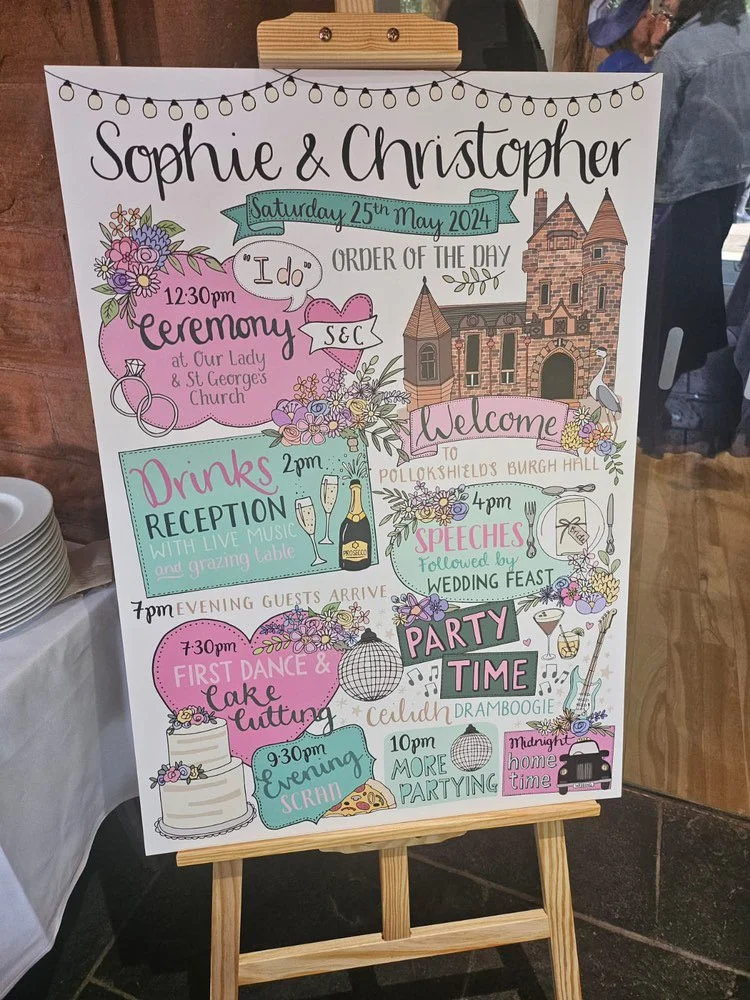 Sophie & Christopher
Saturday 25th May 2024
ORDER OF THE DAY
"I do"
12:30pm
Ceremony
at Our Lady
& St George's
Church
S&C
Welcome
TO
POLLOKSHIELDS BURGH HALL
Drinks 2pm
RECEPTION
WITH LIVE MUSIC
and grazing table
PROSECCO
4pm
SPEECHES
Followed by
WEDDING FEAST
7pm EVENING GUESTS ARRIVE
7:30pm
FIRST DANCE &
Cake
Cutting
PARTY
TIME
Ceilidh DRAMBOOGIE
9:30pm
Evening
SCRAN
10pm
MORE
PARTYING
Midnight
home
time